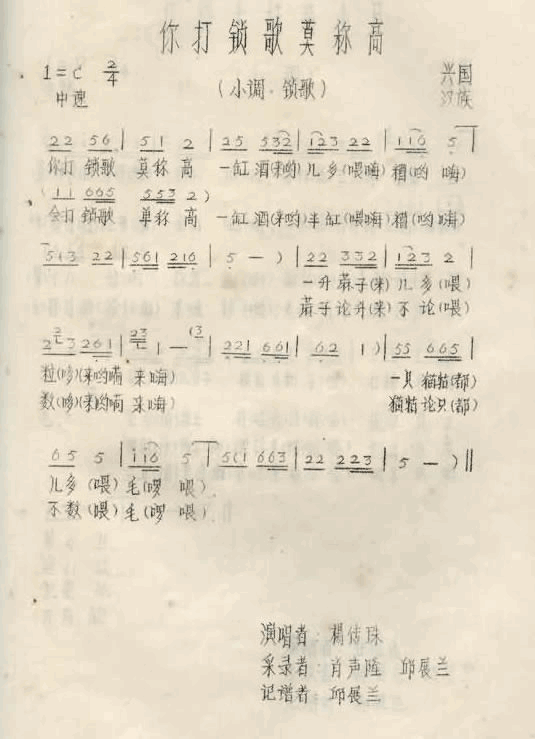 你打锁歌莫称高
1=C 2/4 兴国
中速 (小调·锁歌) 汉族
22 56 | 51 2 | 25 532 | 123 22 | 116 5
你打 锁歌 莫称 高 一缸 酒(来哟) 儿乡(喂嗨) 糟(哟 嗨)
(11 665 553 2)
会打 锁歌 单称 高 一缸 酒(来哟) 半缸(喂嗨) 糟(哟 嗨)
5(3 22 | 561 216 | 5 — ) | 22 332 | 123 2 |
一升 蔴子(来) 儿多(喂)
蔴子 论升(来) 不论(喂)
223 261 | 1 — (3 | 221 661 | 62 1 ) | 55 665 |
粒(哆)(来哟喃 来嗨) 一只 猫猫(都)
数(哆)(来哟喃 来嗨) 猫猫 论只(都)
65 5 | 116 5 | 5(1 663 | 22 223 | 5 — ) ‖
儿多 (喂) 毛(啰 喂)
不数 (喂) 毛(啰 喂)
演唱者：楊传珠
采录者：肖声隆 邱展兰
记谱者：邱展兰